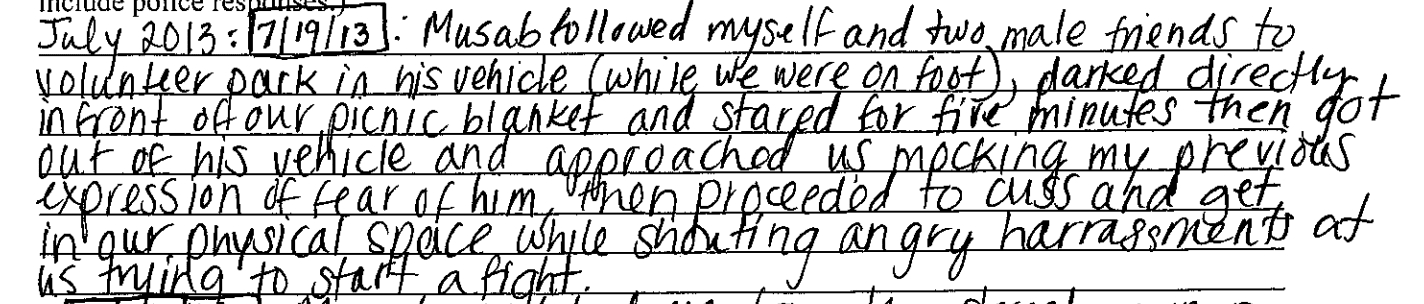 include police responses.)
July 2013: 7/19/13: Musab followed myself and two male friends to
volunteer park in his vehicle (while we were on foot), parked directly
in front of our picnic blanket and stared for five minutes then got
out of his vehicle and approached us mocking my previous
expression of fear of him, then proceeded to cuss and get
in our physical space while shouting angry harrassments at
us trying to start a fight.